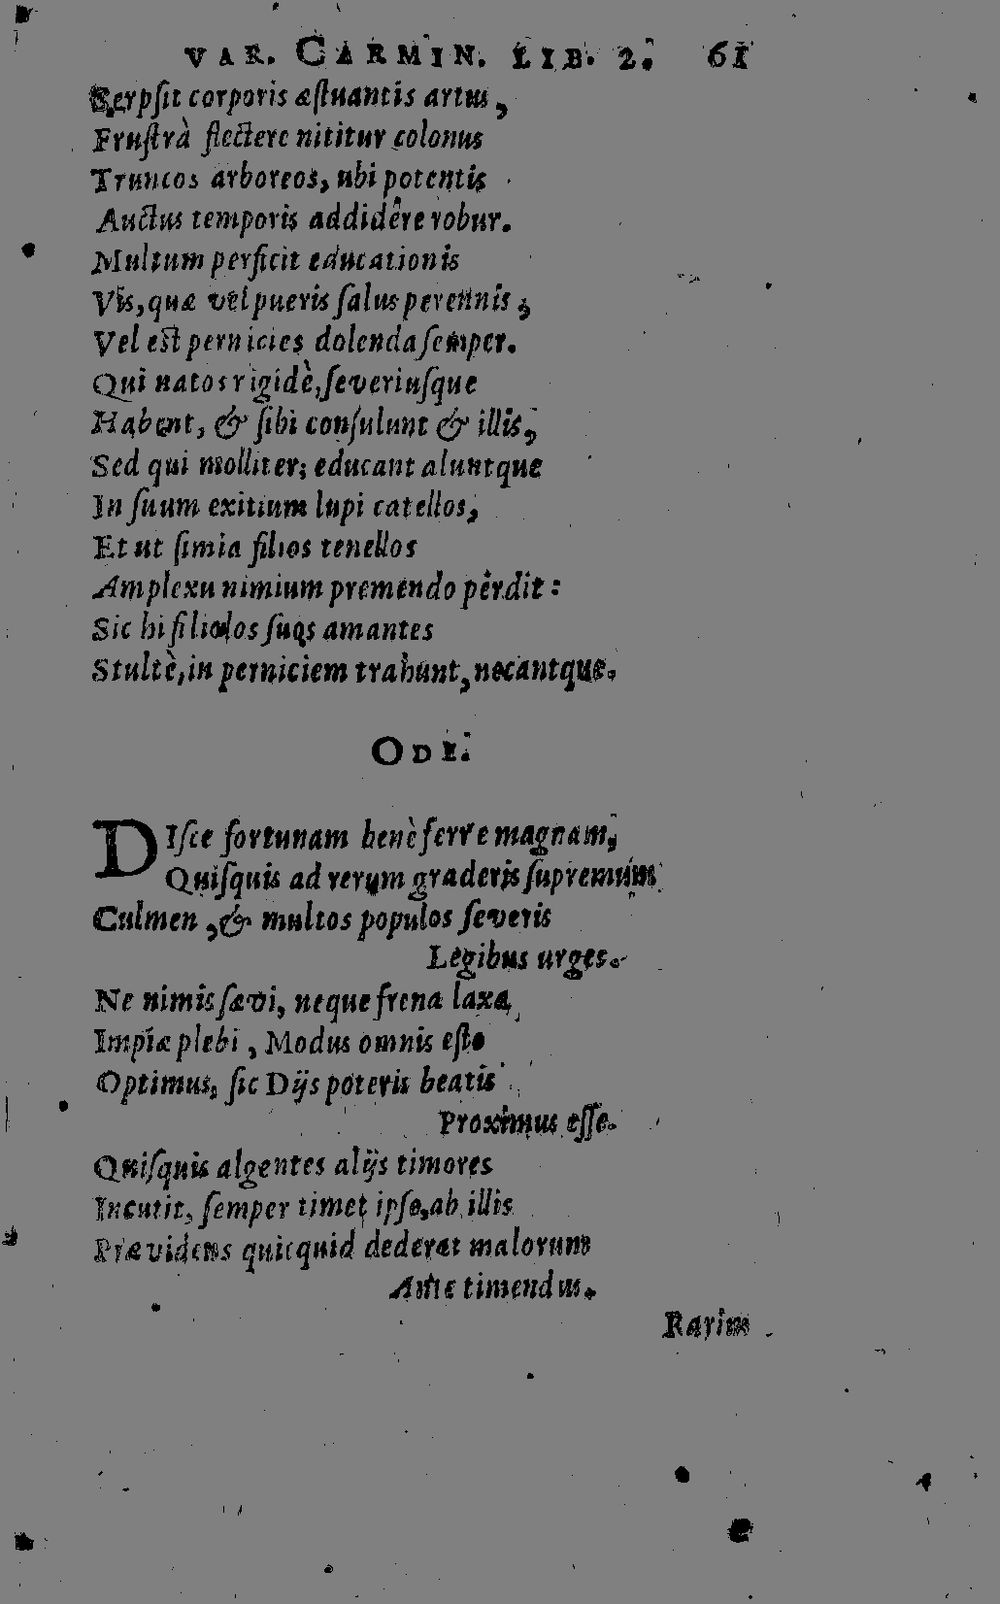 VAR. CARMIN. LIB. 2. 61
Serpſit corporis æſtuantis artus,
Fruſtrà flectere nititur colonus
Truncos arboreos, ubi potentis
Auctus temporis addidêre robur.
Multum perficit educationis
Vis, quæ vel pueris ſalus perennis,
Vel est pernicies dolenda ſemper.
Qui natos rigidè, ſeveriuſque
Habent, & ſibi conſulunt & illis,
Sed qui molliter; educant aluntque
In ſuum exitium lupi catellos,
Et ut ſimia filios tenellos
Amplexu nimium premendo perdit:
Sic hi filiolos ſuos amantes
Stultè, in perniciem trahunt, necantque.
ODE.
DIſce fortunam benè ferre magnam,
Quiſquis ad rerum graderis ſupremum
Culmen, & multos populos ſeveris
Legibus urges.
Ne nimis ſævi, neque frena laxa,
Impiæ plebi, Modus omnis eſto
Optimus, ſic Dijs poteris beatis
Proximus eſſe.
Quiſquis algentes alijs timores
Incutit, ſemper timet ipſe, ab illis
Prævidens quicquid dederat malorum
Ante timendus.
Rarius